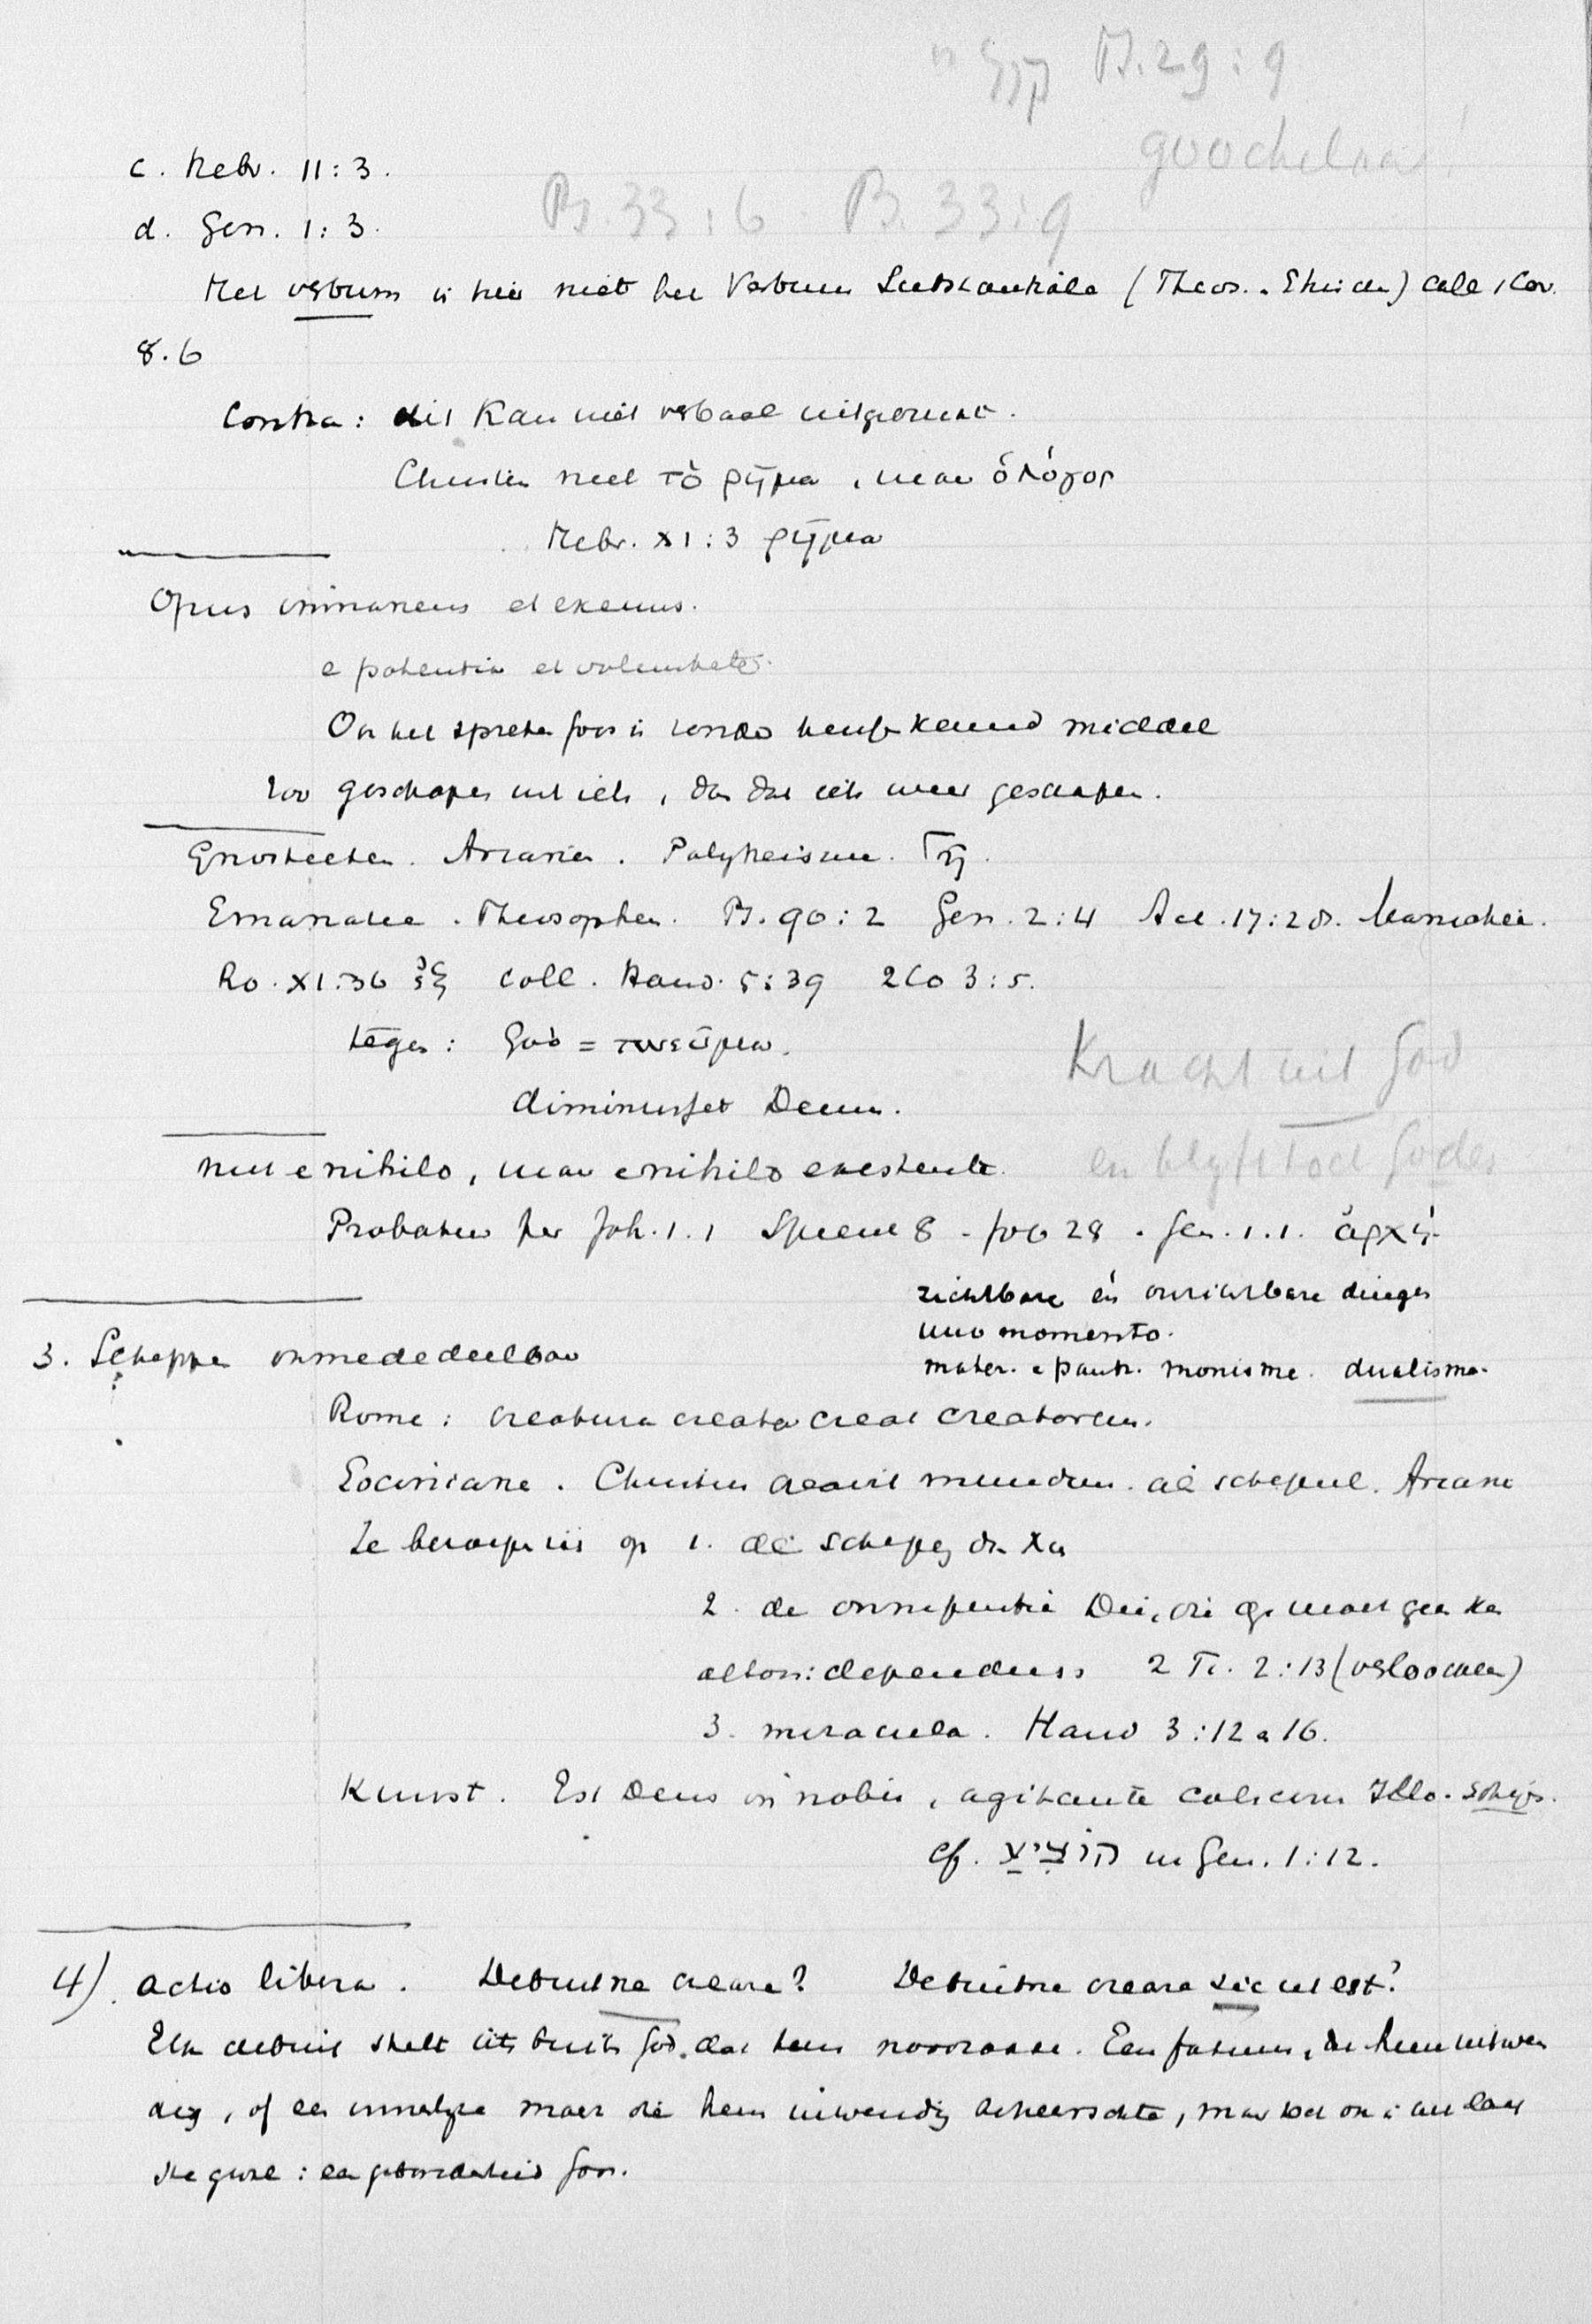 Ps. 29:9
goochelaar!
c. Hebr. 11:3.
Ps. 33:6 Ps. 33:9
d. Gen. 1:3.
Met verbum is hier niet het Verbum Substantiale (Theos. - Ethischen) coll 1 Cor.
8.6
Contra: dit kan niet verbaal uitgedrukt.
Christus niet τὸ ῥῆμα, maar ὁ λόγος
Hebr. XI:3 ῥῆμα
Opus immanens et exeuns.
e potentia et voluntate.
Ook het spreken Gods is zonder tusschenkomend middel
Zoo geschapen uit iets, dan dat iets weer geschapen.
Gnostieken. Arianen. Polytheisme.
Emanatie. Theosophen. Ps. 90:2 Gen. 2:4 Act. 17:28. Manichei.
Ro. XI:36 ἐξ coll. Hand. 5:39 2 Co 3:5.
tegen: God = πνεῦμα.
diminuisset Deum.
Kracht uit God
en blyft tod Godes
niet e nihilo, maar e nihilo existente.
Probatur per Joh. 1.1 Spreuk 8 - Job 28. Gen. 1.1. ἀρχή
zichtbare én onzichtbare dingen
uno momento.
3. Scheppen onmededeelbaar
mater. e panth. monisme. dualisme.
Rome: creatura creata creat creatorem.
Sociniane. Christus creavit mundum. al schepsel. Ariane
Ze beroepen zich op 1. de schepping door Xus
2. de omnipotentia Dei, die
dependens 2 Ti. 2:13 (verloochenen)
3. miracula. Hand 3:12 a 16.
Kunst. Est Deus in nobis, agitante calescimus Illo.
cf. הוֹצִיא in Gen. 1:12.
4). actio libera. Debuitne creare? Debuitne creare sic ut est?
Elk debuit stelt iets buiten God, dat hem noodzaakte. Een fatum, dat hem uitwen
dig, of een innerlyke macht die hem inwendig beheerschte, maar
: een gebondenheid Gods.